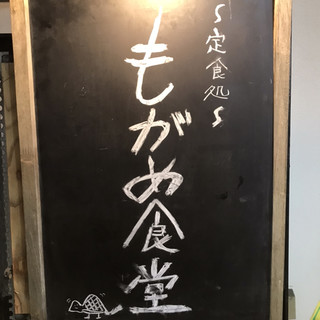 〜定食処〜
もがめ食堂